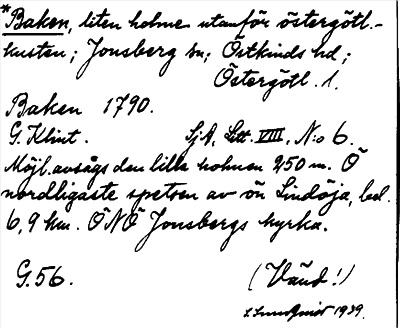 *Baken, liten holme utanför östergötl.-
kusten; Jonsberg sn; Östkinds hd;
Östergötl. 1.
Baken 1790.
G. Klint. SjA, Litt. VIII, N:o 6.
Möjl. avsågs den lilla holmen 250 m. Ö
nordligaste spetsen av ön Lindöja, bel.
6,9 km. ÖNÖ Jonsbergs kyrka.
G. 56. (Vänd!)
1939.